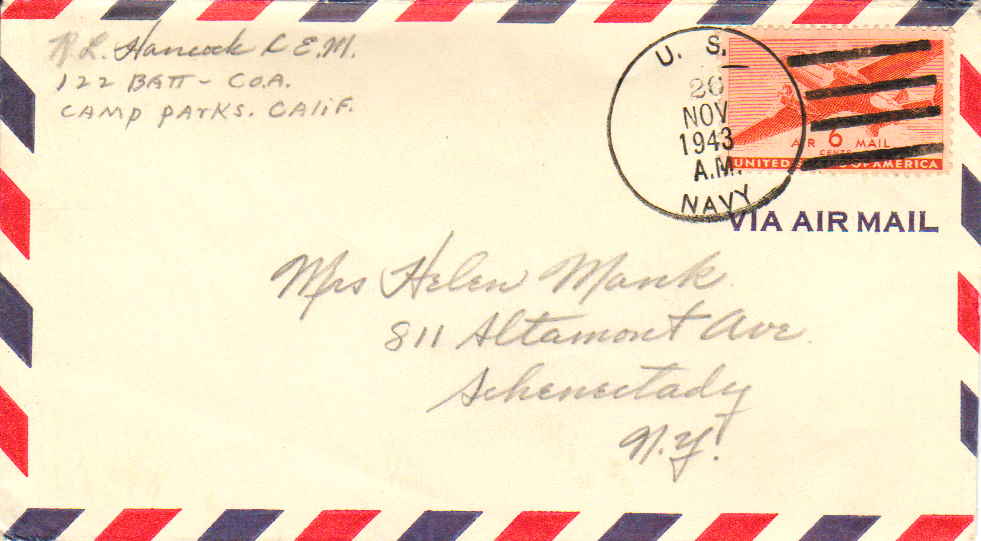 R. L. Hancock C E.M.
122 BATT - CO.A.
CAMP PARKS. CALIF.
U. S.
26
NOV
1943
A.M.
NAVY
AIR 6 MAIL
CENTS
UNITED OF AMERICA
VIA AIR MAIL
Mrs Helen Mank
811 Altamont Ave.
Schenectady
N.Y.